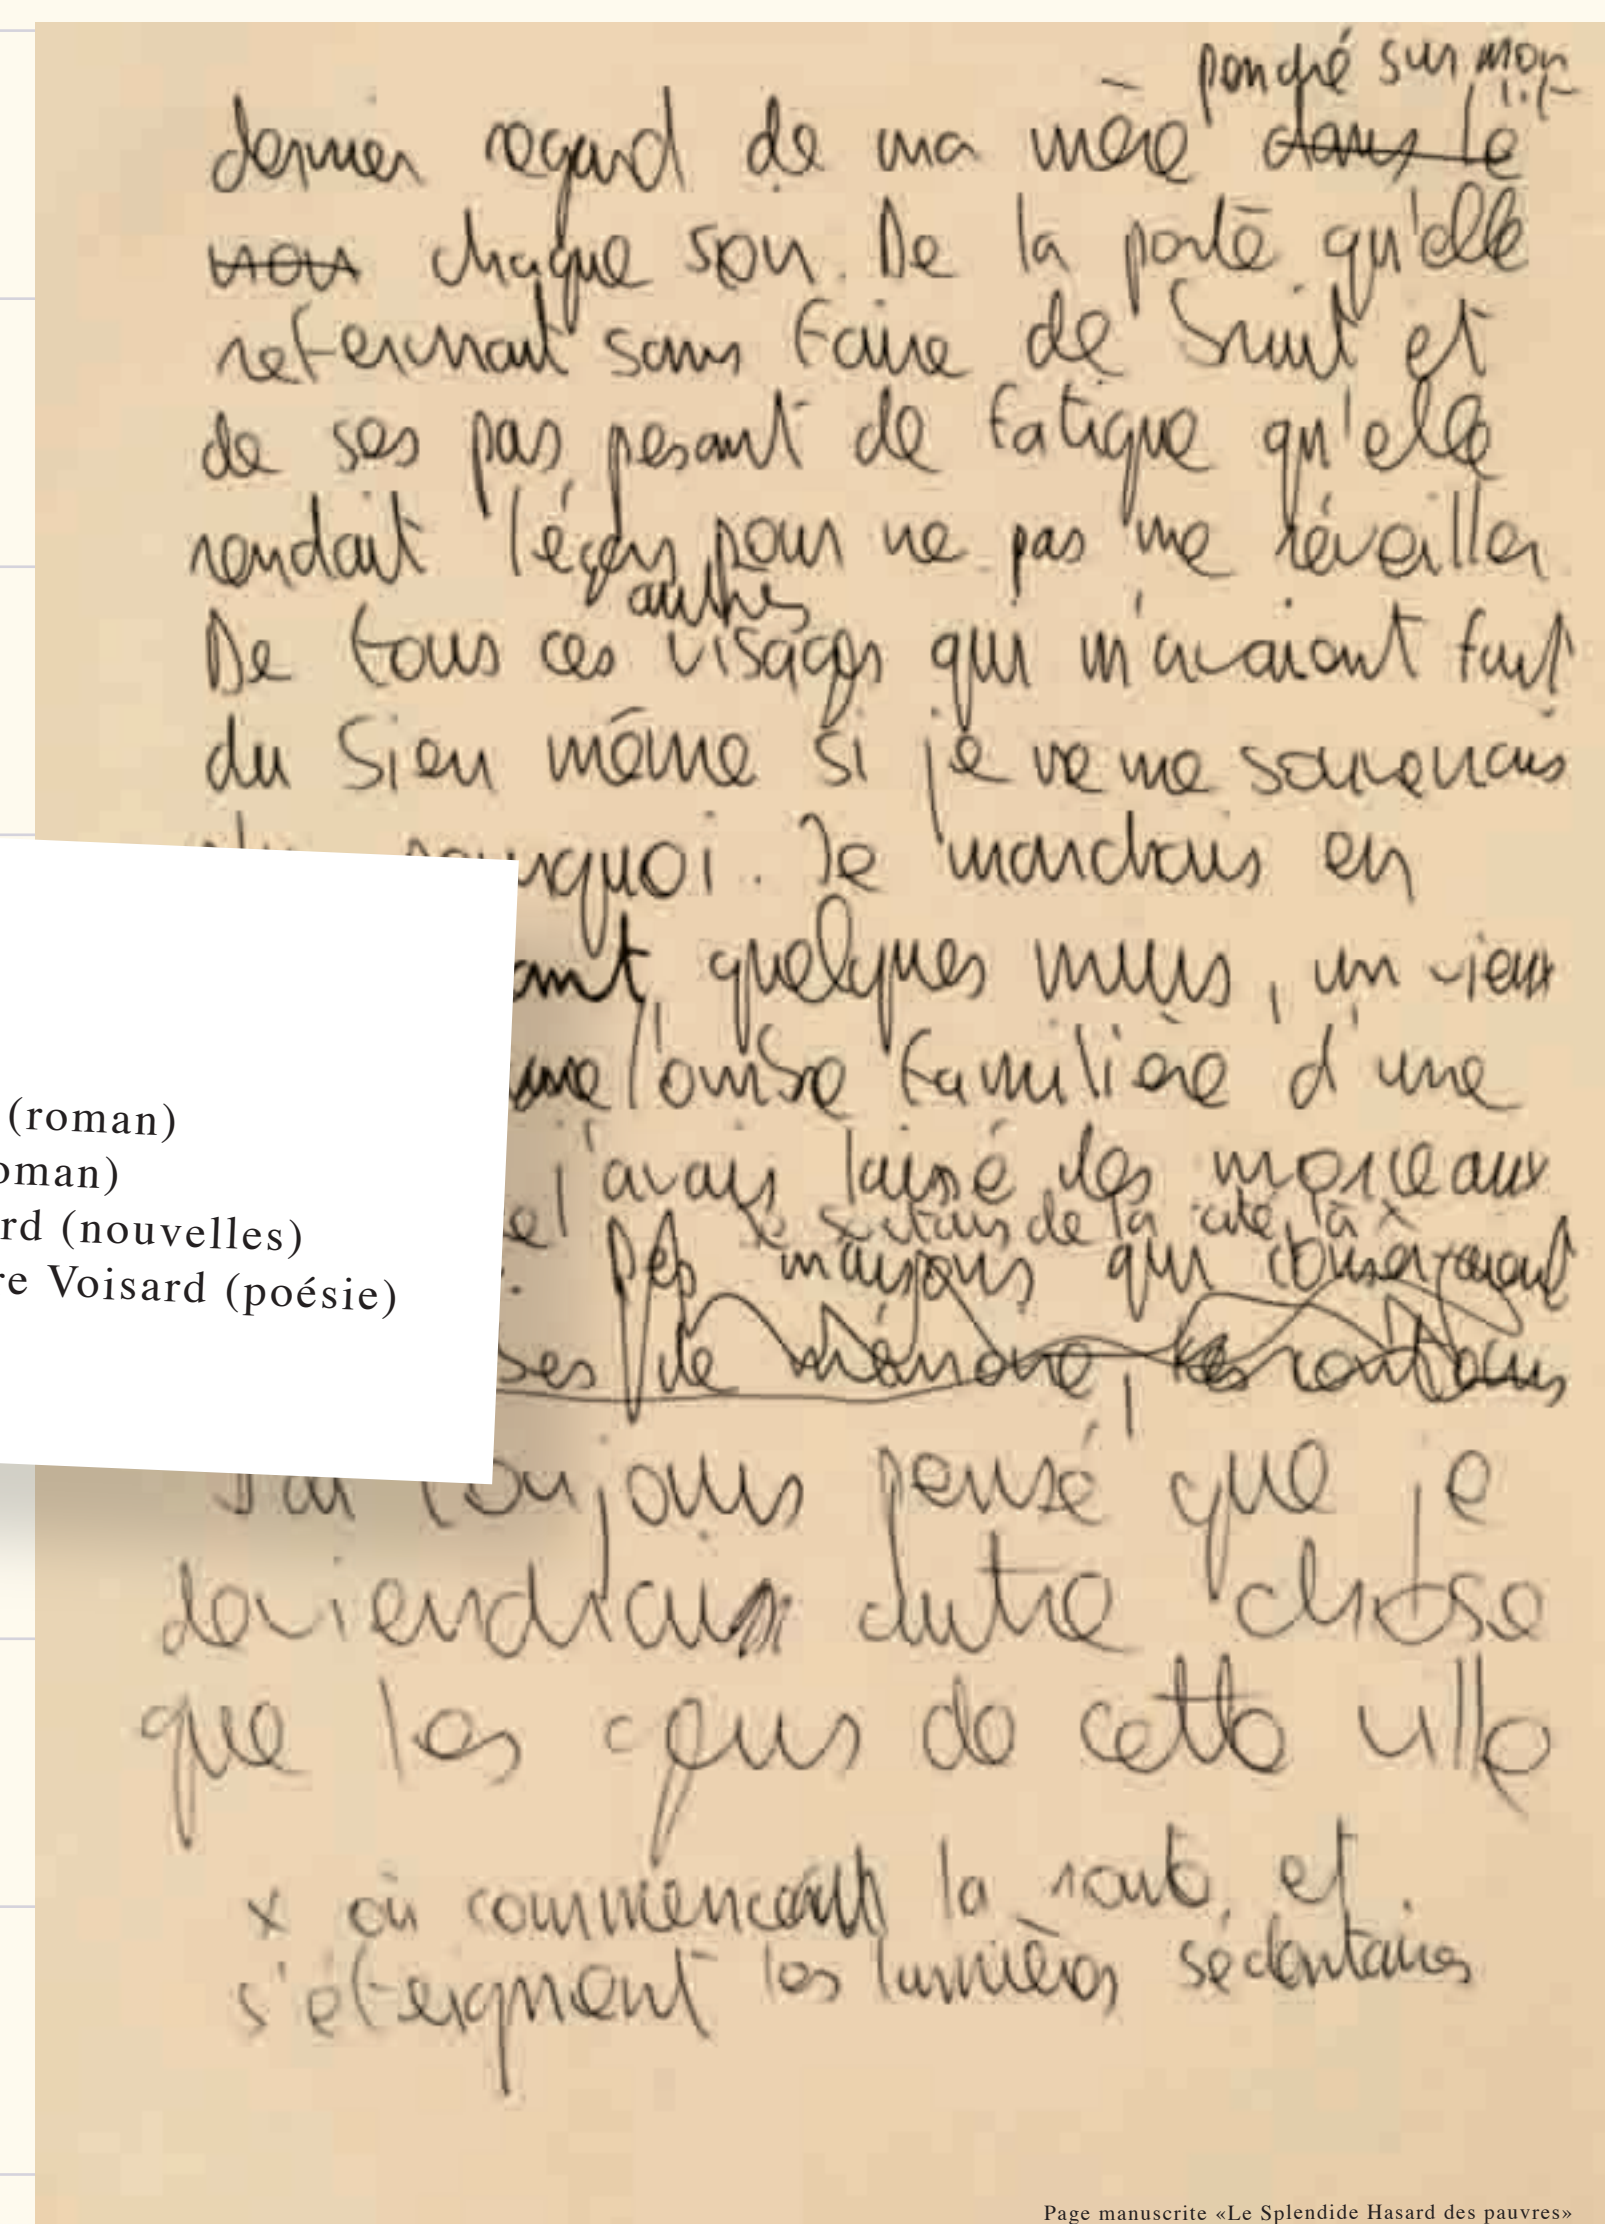 penché sur mon
lit
dernier regard de ma mère dans le
noir chaque soir. De la porte qu'elle
refermait sans faire de bruit et
de ses pas pesant de fatigue qu'elle
rendait légers pour ne pas me réveiller.
autres
De tous ces visages qui m'avaient fait
du bien même si je ne me souvenais
pourquoi. Je marchais en
ant quelques murs, un vieux
l'ombre familière d'une
j'avais laissé des morceaux
Je sortais de la cité, là x
Des maisons qui conservaient
de mémoire,
J'ai toujours pensé que je
deviendrais autre chose
que les gens de cette ville
x où commencent la route et
s'éteignent les lumières sédentaires
(roman)
oman)
rd (nouvelles)
re Voisard (poésie)
Page manuscrite «Le Splendide Hasard des pauvres»